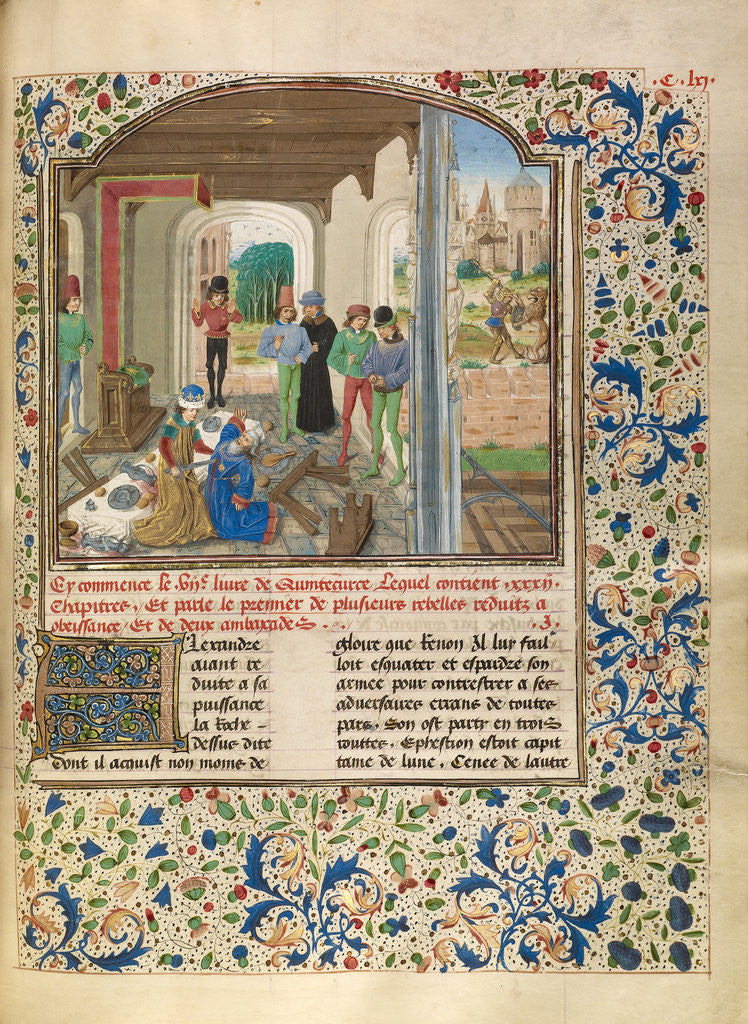 .C. lxj.
Cy commence le .viije. liure de Quintecurce Lequel contient .xxxij.
Chapitres, Et parle le premier de plusieurs rebelles reduitz a
obeissance, Et de deux ambaxades .j.
Alexandre
aiant re
duite a sa
puissance
la Roche
dessus dite
dont il acquist non moins de
gloire que Renon Il luy fail
loit esquater et espardre son
armee pour contrester a ses
aduersaires errans de toutes
pars, Son ost party en trois
routtes, Ephestion estoit capi
taine de lune, Cenee de lautre